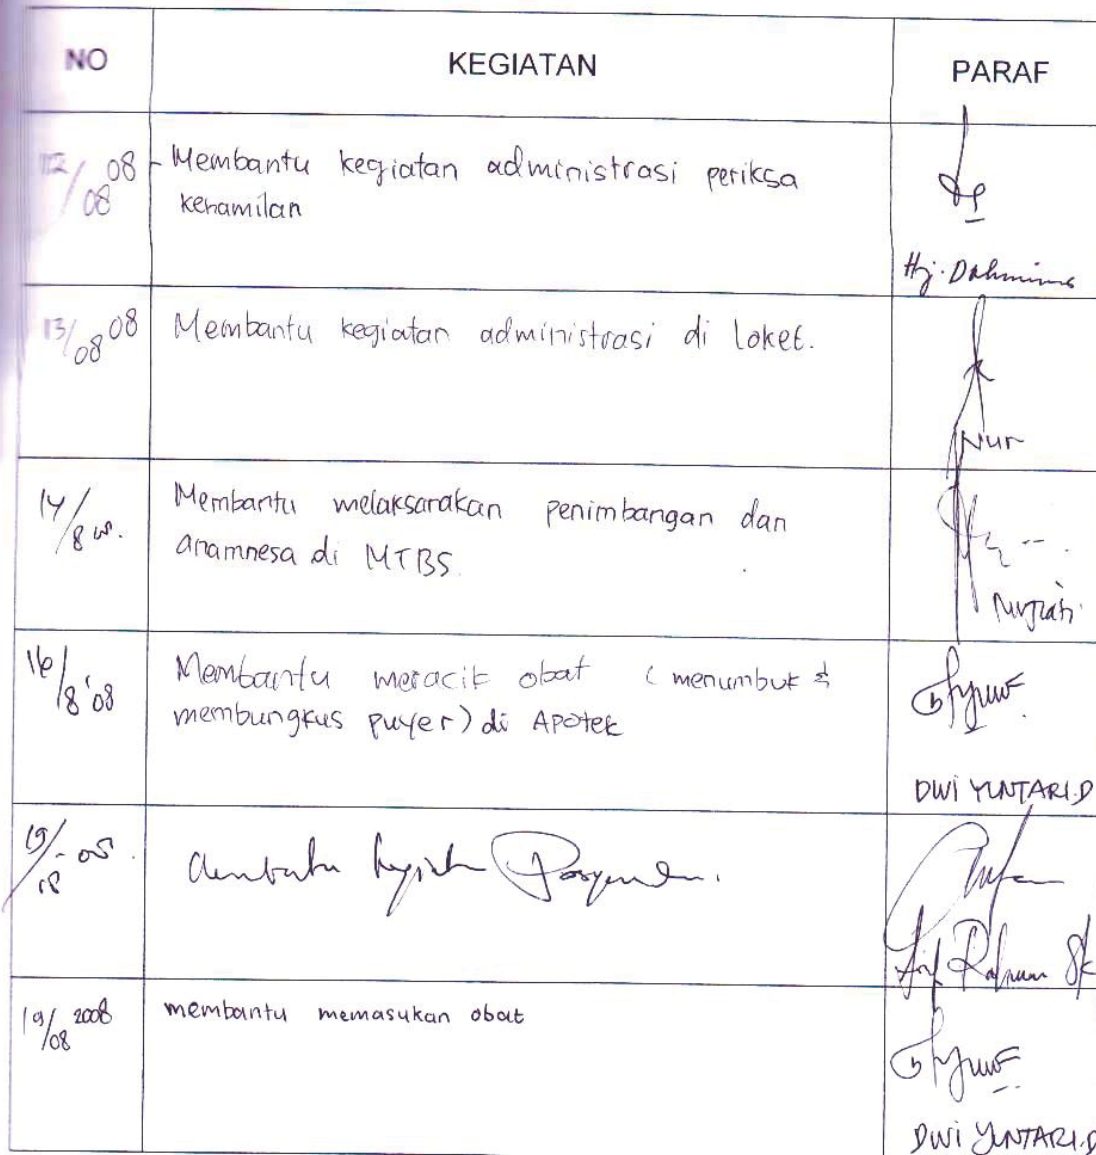 NO KEGIATAN PARAF
12/08 08 - Membantu kegiatan administrasi periksa
kehamilan
Hj. Dahmima
13/08 08 Membantu kegiatan administrasi di loket.
Nur
14/8 08. Membantu melaksanakan penimbangan dan
anamnesa di MTBS
16/8 '08 Membantu meracik obat (menumbuk &
membungkus puyer) di Apotek
DWI YUNTARI.D
Posyandu.
19/08 2008 membantu memasukan obat
DWI YUNTARI.D